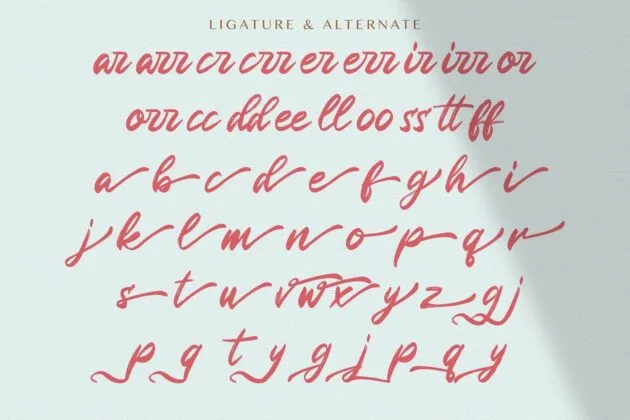 LIGATURE & ALTERNATE
ar arr cr crr er err ir irr or
orr cc dd ee ll oo ss tt ff
a b c d e f g h i
j k l m n o p q r
s t u v w x y z g j
p q t y g j p q y